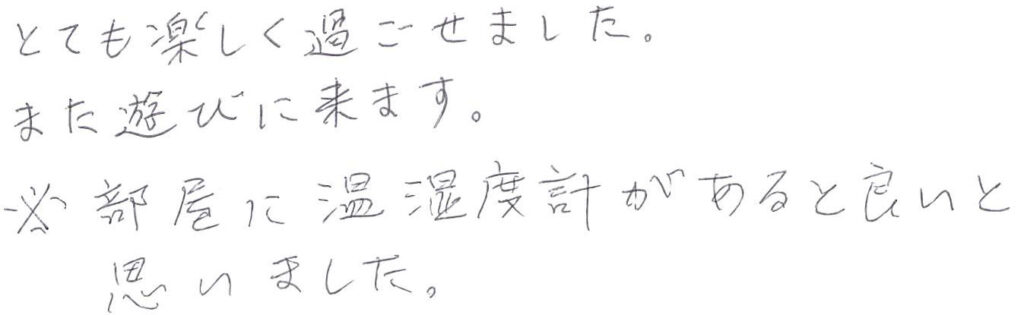 とても楽しく過ごせました。
また遊びに来ます。
※部屋に温湿度計があると良いと
思いました。